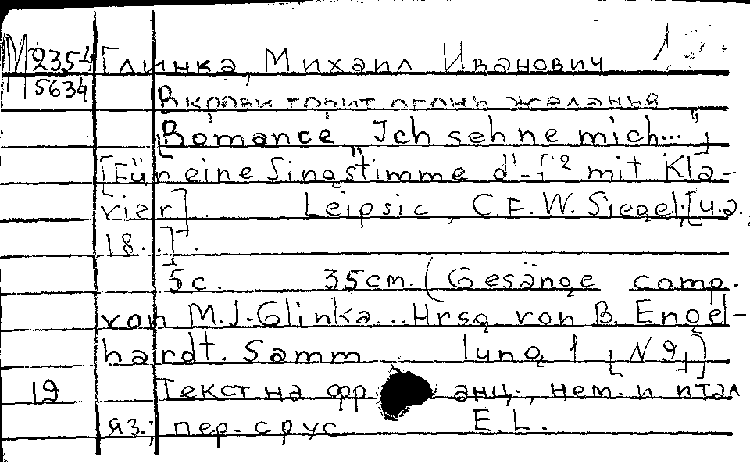 М 235⊥ Глинка, Михаил Иванович
5634 В крови горит огонь желанья
[Romance "Ich sehne mich..."]
[Für eine Singstimme d'-f² mit Kla-
vier]. Leipsic, C.F.W. Siegel, [u.a.,
18..].
5 с. 35 cm. (Gesänge comp.
von M.J. Glinka... Hrsg von B. Engel-
hardt. Samm lung 1 [N 9])
19 Текст на фр анц., нем. и итал
яз.; пер. с рус E.L.